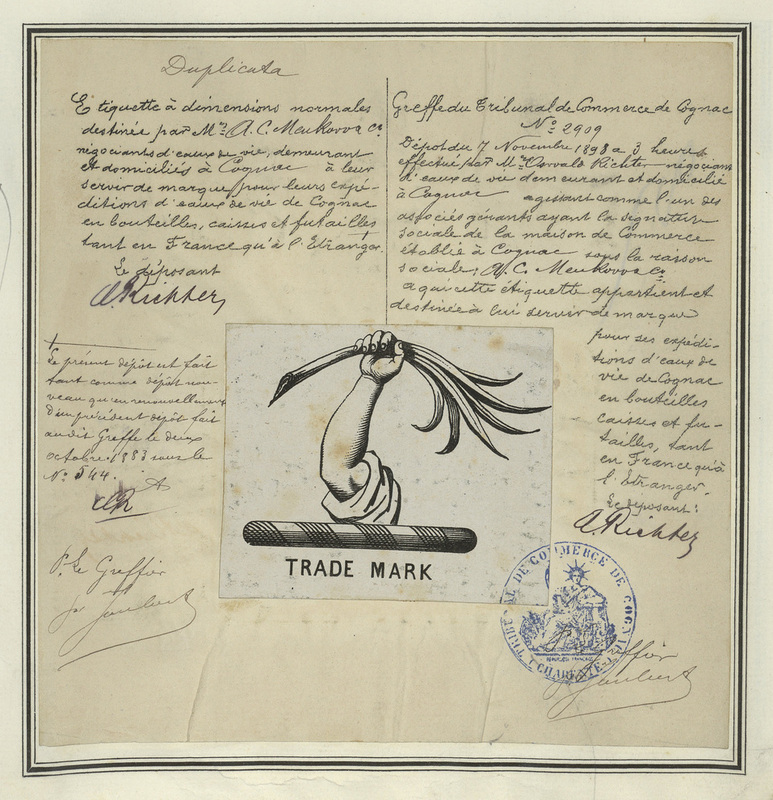 Duplicata
Etiquette à dimensions normales
destinée par Mrs A. C. Meukow & Co
négociants d'eaux de vie, demeurant
et domiciliés à Cognac à leur
servir de marque pour leurs expé-
ditions d'eaux de vie de Cognac
en bouteilles, caisses et futailles
tant en France qu'à l'Etranger.
Le déposant
A. Richter
Le présent dépôt est fait
tant comme dépôt nou-
veau qu'en renouvellement
d'un précédent dépôt fait
audit Greffe le deux
octobre 1883 sous le
No 544.
AR
P. Le Greffier
Joubert
Greffe du Tribunal de Commerce de Cognac
No 2909
Dépôt du 7 Novembre 1898 à 3 heures
effectué par Mr Richter négociant
d'eaux de vie demeurant et domicilié
à Cognac agissant comme l'un des
associés gérants ayant la signature
sociale de la maison de Commerce
établie à Cognac sous la raison
sociale, A. C. Meukow & Co
a qui cette étiquette appartient et
destinée à lui servir de marque
pour ses expédi-
tions d'eaux de
vie de Cognac
en bouteilles
caisses et fu-
tailles, tant
en France qu'à
l'Etranger.
Le déposant:
A. Richter
TRADE MARK
TRIBUNAL DE COMMERCE DE COGNAC
RÉPUBLIQUE FRANÇAISE
(CHARENTE)
Greffier
Joubert